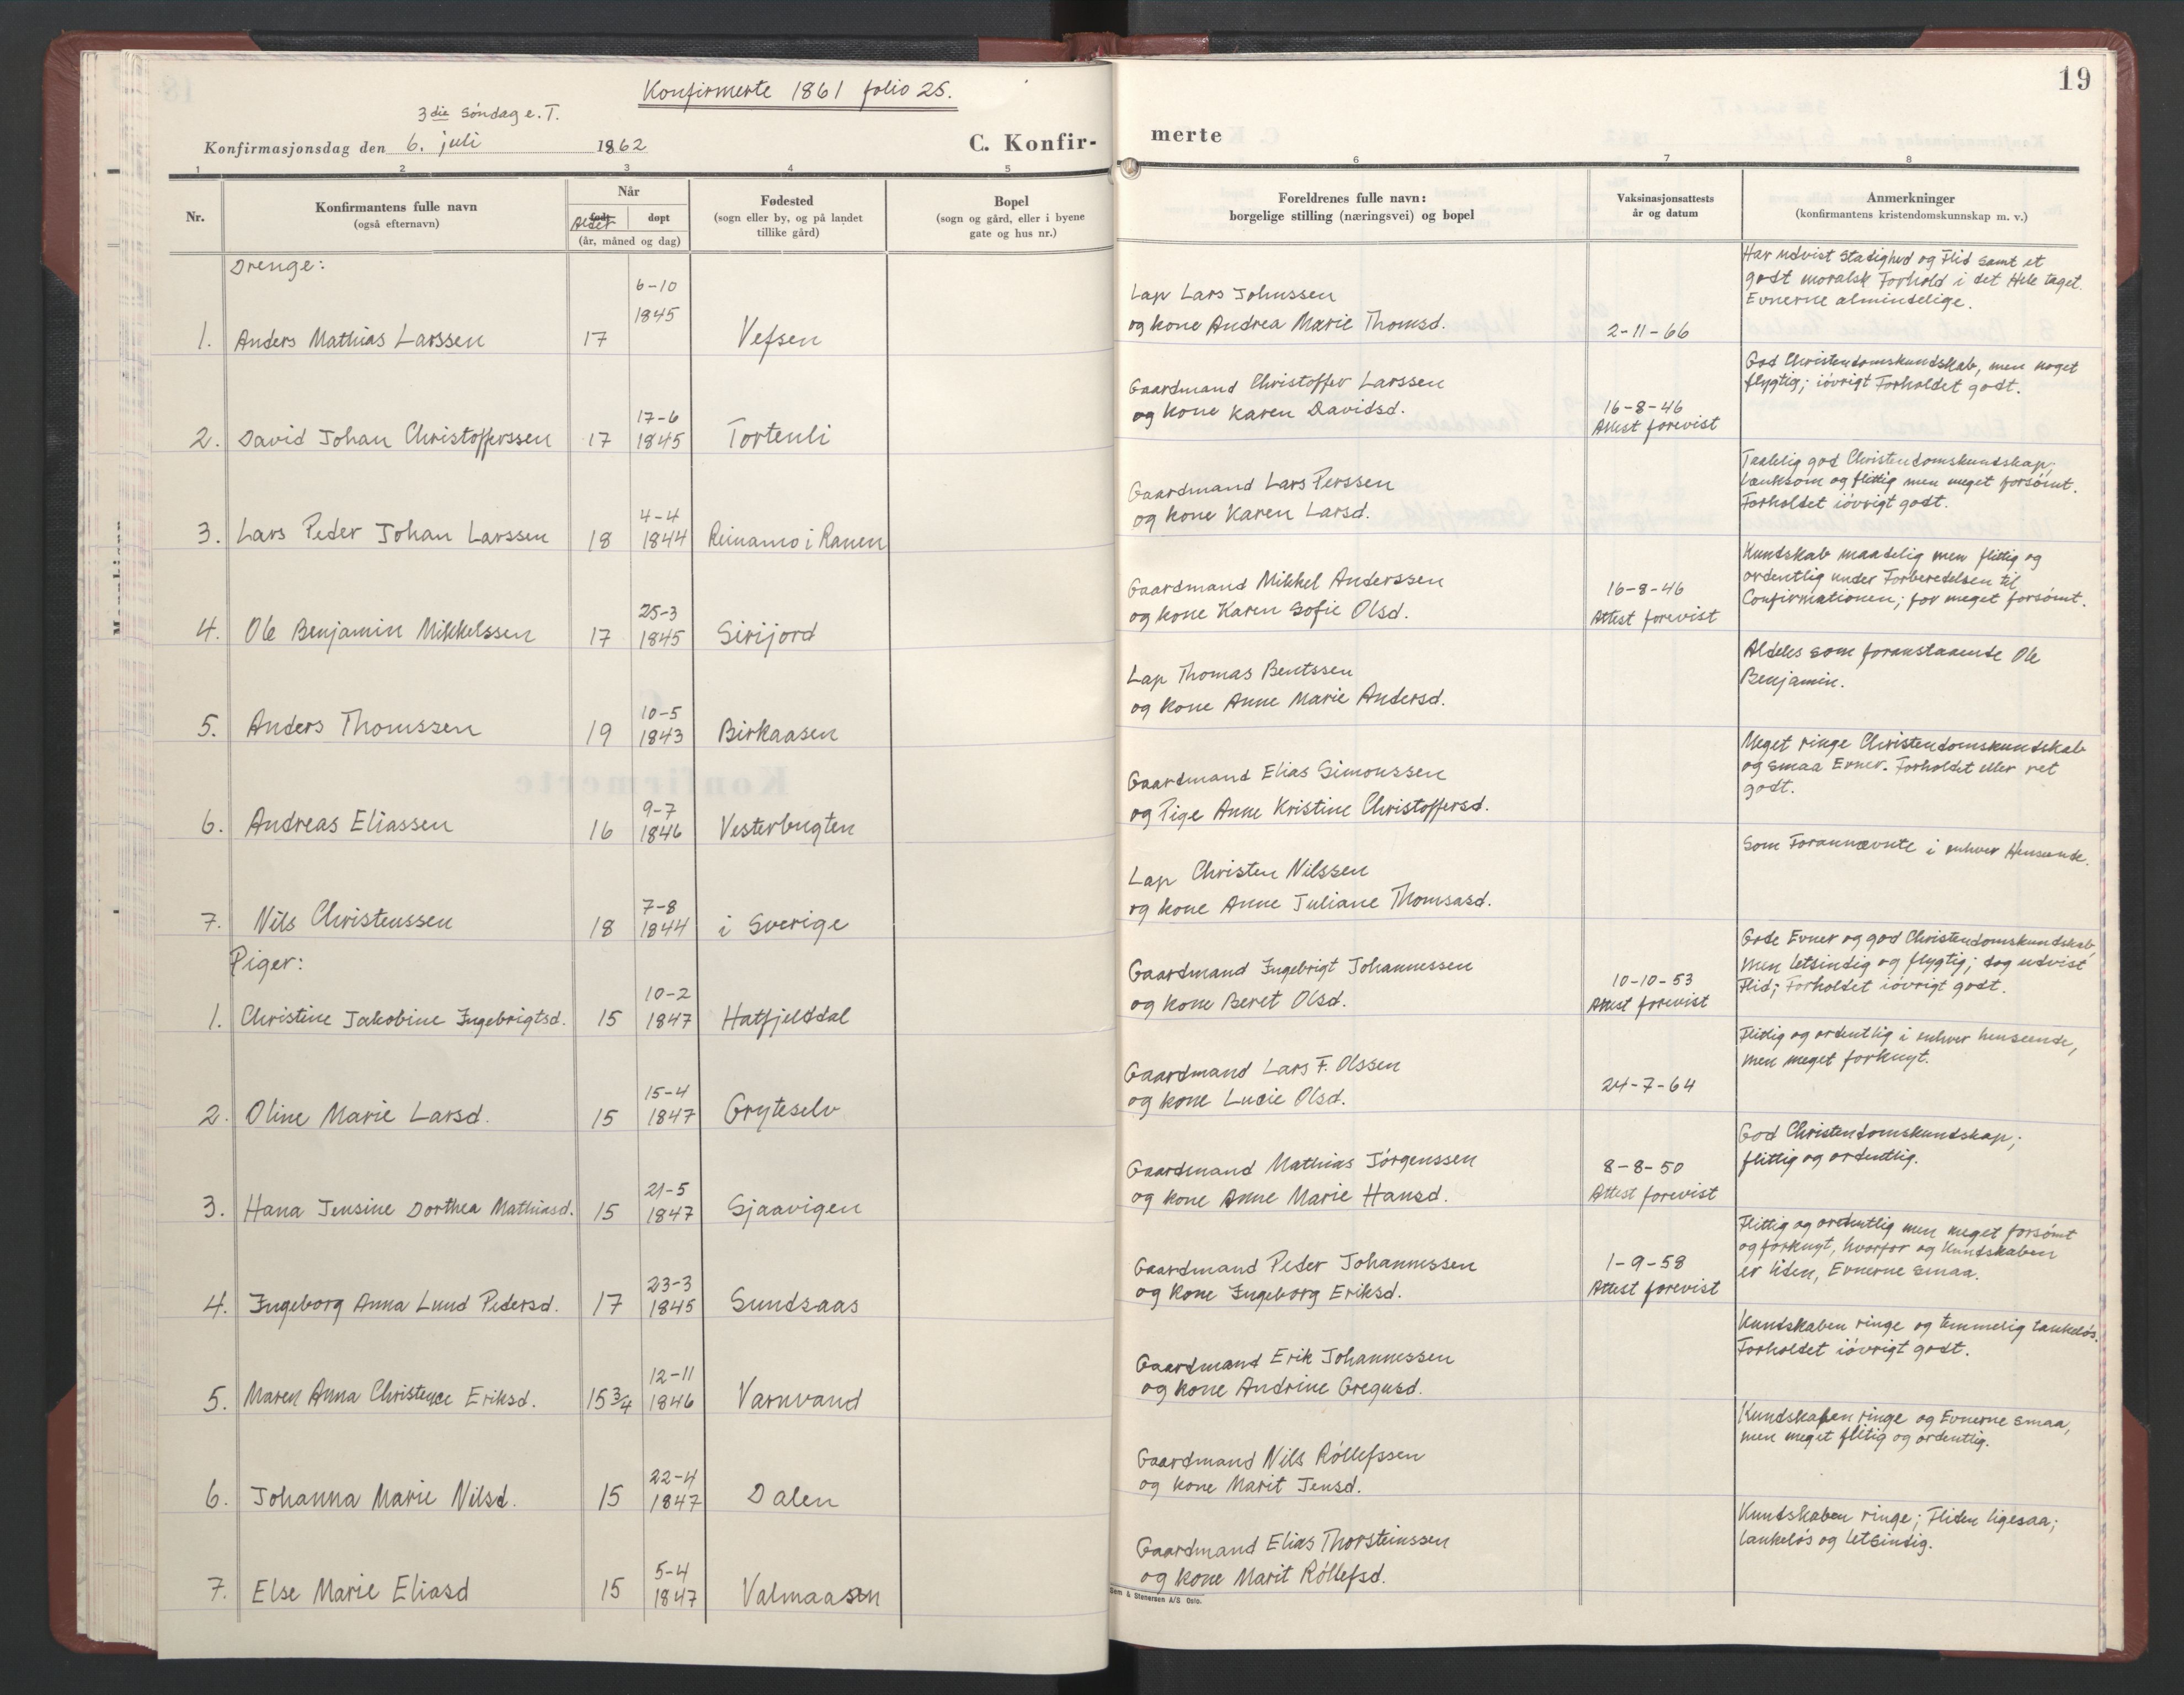 Konfirmerte 1861 folio 25.
19
3die Søndag e. T.
Konfirmasjonsdag den 6. juli 1862
C. Konfir-
merte
1 2 3 4 5 6 7 8
Nr.
Konfirmantens fulle navn
(også efternavn)
Når
født
Alder
døpt
(år, måned og dag)
Fødested
(sogn eller by, og på landet
tillike gård)
Bopel
(sogn og gård, eller i byene
gate og hus nr.)
Foreldrenes fulle navn:
borgelige stilling (næringsvei) og bopel
Vaksinasjonsattests
år og datum
Anmerkninger
(konfirmantens kristendomskunnskap m. v.)
Drenge:
1. Anders Mathias Larssen 17 6-10 1845 Vefsen
Lap Lars Johnssen
og kone Andrea Marie Thomsd.
2-11-66
Har udvist Stadighed og Flid samt et
godt moralsk Forhold i det Hele taget.
Evnerne almindelige.
2. David Johan Christofferssen 17 17-6 1845 Tortenli
Gaardmand Christoffer Larssen
og kone Karen Davidsd.
16-8-46
Attest forevist
God Christendomskundskab, men noget
flygtig; iøvrigt Forholdet godt.
3. Lars Peder Johan Larssen 18 4-4 1844 Reinamo i Ranen
Gaardmand Lars Perssen
og kone Karen Larsd.
Taalelig god Christendomskundskap;
Lænksom og flittig men meget forsømt.
Forholdet iøvrigt godt.
4. Ole Benjamin Mikkelssen 17 25-3 1845 Sirijord
Gaardmand Mikkel Anderssen
og kone Karen Sofie Olsd.
16-8-46
Attest forevist
Kundskab maadelig men flittig og
ordentlig under Forberedelsen til
Confirmationen; for meget forsømt.
5. Anders Thomssen 19 10-5 1843 Birkaasen
Lap Thomas Bentssen
og kone Anne Marie Andersd.
Aldeles som foranstaaende Ole
Benjamin.
6. Andreas Eliassen 16 9-7 1846 Vesterbugten
Gaardmand Elias Simonssen
og Pige Anne Kristine Christoffersd.
Meget ringe Christendomskundskab
og smaa Evner. Forholdet eller ret
godt.
7. Nils Christenssen 18 7-8 1844 i Sverige
Lap Christen Nilssen
og kone Anne Juliane Thomsasd.
Som Forannævnte i enhver Henseende.
Piger:
1. Christine Jakobine Ingebrigtsd. 15 10-2 1847 Hatfjelddal
Gaardmand Ingebrigt Johannessen
og kone Beret Olsd.
10-10-53
Attest forevist
Gode Evner og god Christendomskundskab
men letsindig og flygtig; dog udvist
Flid; Forholdet iøvrigt godt.
2. Oline Marie Larsd. 15 15-4 1847 Gryteselv
Gaardmand Lars F. Olssen
og kone Lucie Olsd.
24-7-64
Flidig og ordentlig i enhver henseende,
men meget forknyt.
3. Hana Jensine Dorthea Mathiasd. 15 21-5 1847 Sjaavigen
Gaardmand Mathias Jørgenssen
og kone Anne Marie Hansd.
8-8-50
Attest forevist
God Christendomskundskap;
flittig og ordentlig.
4. Ingeborg Anna Lund Pedersd. 17 23-3 1845 Sundsaas
Gaardmand Peder Johannessen
og kone Ingeborg Eriksd.
1-9-58
Attest forevist
Flittig og ordentlig men meget forsømt
og forknyt, hvorfor og Kundskaben
er liden, Evnerne smaa.
5. Maren Anna Christence Eriksd. 15 3/4 12-11 1846 Varnvand
Gaardmand Erik Johannessen
og kone Andrine Gregusd.
Kundskaben ringe og temmelig tankeløs.
Forholdet iøvrigt godt.
6. Johanna Marie Nilsd. 15 22-4 1847 Dalen
Gaardmand Nils Røllefssen
og kone Marit Jensd.
Kundskaben ringe og Evnerne smaa,
men meget flitig og ordentlig.
7. Else Marie Eliasd 15 5-4 1847 Valmaasen
Gaardmand Elias Thorsteinssen
og kone Marit Røllefsd.
Kundskaben ringe; Fliden ligesaa;
tankeløs og letsindig.
Sem & Stenersen A/S Oslo.